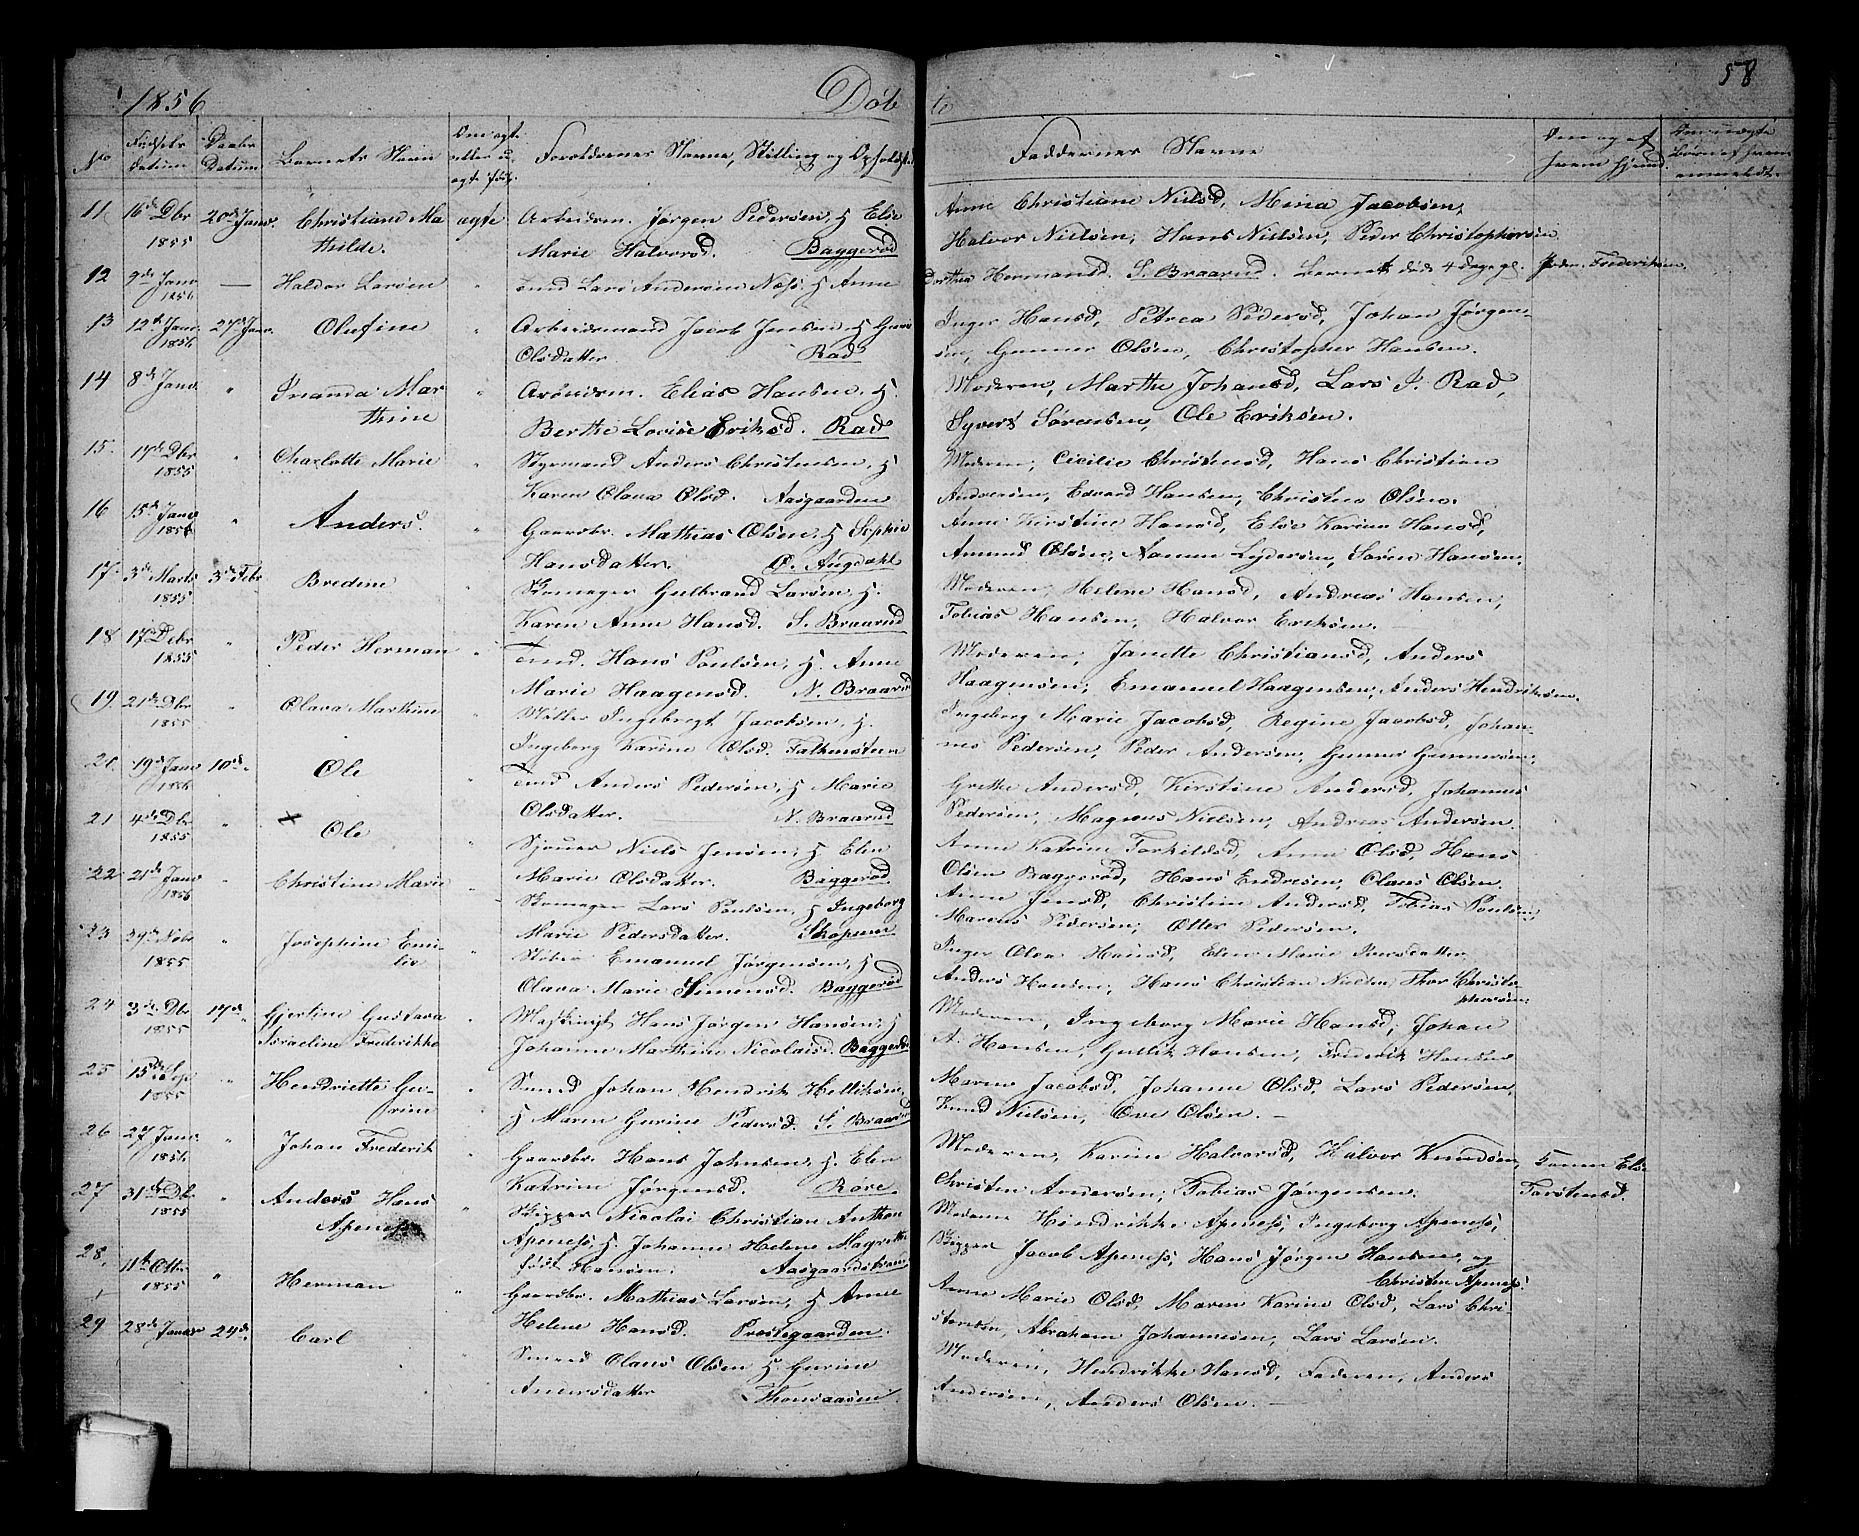 1856 Døbte 58
No Fødsels Datum Daabs Datum Barnets Navn Om ægte eller u ægte født Forældrenes Navne, Stilling og Opholdsted Faddernes Navne
11 16de Dbr 1855 20de Janr. Christiane Mathilde. ægte Arbeidsm. Jørgen Pedersen, H Else
Marie Halvorsd. Baggerød
Anne Christiane Nielsd, Mina Jacobsen,
Halvor Nielsen, Hans Nielsen, Peder Christophersen
12 9de Janr 1856 — Haldor Larsen " Tmd Lars Andersen Næss H Anne
Dorthea Hermansd. S. Braarud. Barnet døde 4 Dage gl. Peder Frederiksen.
13 12te Janr. 1856 27de Janr. Olufine " Arbeidsmand Jacob Jensen H
Olsdatter. Rød
Inger Hansd, Petrea Pedersd, Johan Jørgen-
sen, Gunner Olsen, Christopher Hansen.
14 8de Janr. " Inanda Marthine " Arbeidsm. Elias Hansen, H.
Berthe Lovise Eriksd. Rød
Moderen, Marthe Johansd, Lars J. Rød,
Syvert Sørensen, Ole Eriksen.
15. 17de Dbr 1855 " Charlotte Marie " Styrmand Anders Christensen, H
Karen Olava Olsd. Aasgaarden
Moderen, Cicilie Christensd, Hans Christian
Andersen, Edvard Hansen, Christen Olsen.
16 15de Janr 1856 " Anders. " Gaardbr. Mathias Olsen, H Sophie
Hansdatter. Ø. Augdahl
Anne Kirstine Hansd, Else Karine Hansd,
Amund Olsen, Namm Lydersen, Søren Hansen.
17. 3de Marts 1855 3de Febr Bredine " Skomager Gulbrand Larsen H.
Karen Anne Hansd. S. Braarud
Moderen, Helene Hansd, Andreas Hansen,
Tobias Hansen, Halvor Eriksen.
18 17de Debr 1855 " Peder Herman " Tmd. Hans Poulsen, H. Anne
Marie Haagensd. N. Braarud
Moderen, Janette Christiansd, Anders
Haagensen, Emanuel Haagensen, Anders Hendriksen.
19. 21de Dbr 1855 " Olava Marthine " Møller Ingebregt Jacobsen, H.
Ingeborg Karine Olsd. Falkensteen
Ingeborg Marie Jacobsd, Regine Jacobsd, Johan-
nes Pedersen, Peder Andersen, Gunner Gunnersen.
20. 19de Janr 1856 10de. Ole " Tmd Anders Pedersen, H Marie
Olsdatter. N. Braarud
Grethe Andersd, Kirstine Andersd, Johannes
Pedersen, Magnus Nielsen, Andreas Andersen.
21 4de Dbr 1855 " Ole " Niels Jensen, H Elen
Marie Olsdatter. Baggerød
Anne Katrine Torkildsd, Anne Olsd, Hans
Olsen Baggerød, Hans Endresen, Olaus Olsen.
22 21de Janr 1856 " Christine Marie " Skomager Lars Poulsen, H Ingeborg
Marie Pedersdatter. Skopum
Anne Jensd, Christine Andersd, Tobias Poulsen
Marcus Pedersen, Otter Pedersen.
23 29de Nobr 1855 " Josephine Emilie " Emanuel Jørgensen, H
Olava Marie Simensd. Baggerød
Inger Olea Hansd, Elen Marie Larsdatter
Anders Hansen, Hans Christian Nielsen Thor Christo-
phersen.
24 3de Dbr 1855 17de Gjertine Gustava Israeline Frederikke " Maskinist Hans Jørgen Hansen, H
Johanne Marthine Nicolaisd. Baggerød
Moderen, Ingeborg Marie Hansd, Johan
A. Hansen, Gullik Hansen, Frederik Hansen
25 15de Sep. 1855 " Hendriette Gurine " Smed Johan Hendrik Helliksen,
H Maren Gurine Pedersd. S. Braarud
Maren Jacobsd, Johanne Olsd, Lars Pedersen,
Knud Nielsen, Ove Olsen. —
26 27 Janr. 1856 " Johan Frederik " Gaardbr. Hans Johnsen, H. Elen
Katrine Jørgensd. Røre
Moderen, Karine Halvorsd, Halvor Knudsen, Konen Else
Christen Andersen, Tobias Jørgensen. Torstensd.
27 31de Dbr 1855 " Anders Hans Apenæss " Skipper Nicolai Christian Anthon
Apenæss H Johanne Helene Magrethe
født Hansen. Aasgaardstrand
Moderen Hendrikke Apenæss, Ingeborg Apenæss,
Skipper Jacob Apenæss, Hans Jørgen Hansen, og
Christen Apenæss.
28. 11te Otbr 1855 " Herman " Gaardbr. Mathias Larsen, H Anne
Helene Hansd. Præstegaarden.
Anne Marie Olsd, Maren Karine Olsd, Lars Chri-
stensen, Abraham Johannesen, Lars Larsen.
29 28de Januar 24de. Carl " Smed Olaus Olsen H. Gurine
Andersdatter Thorsaasen.
Moderen, Hendrikke Hansd, Faderen, Anders
Andersen, Anders Olsen. —